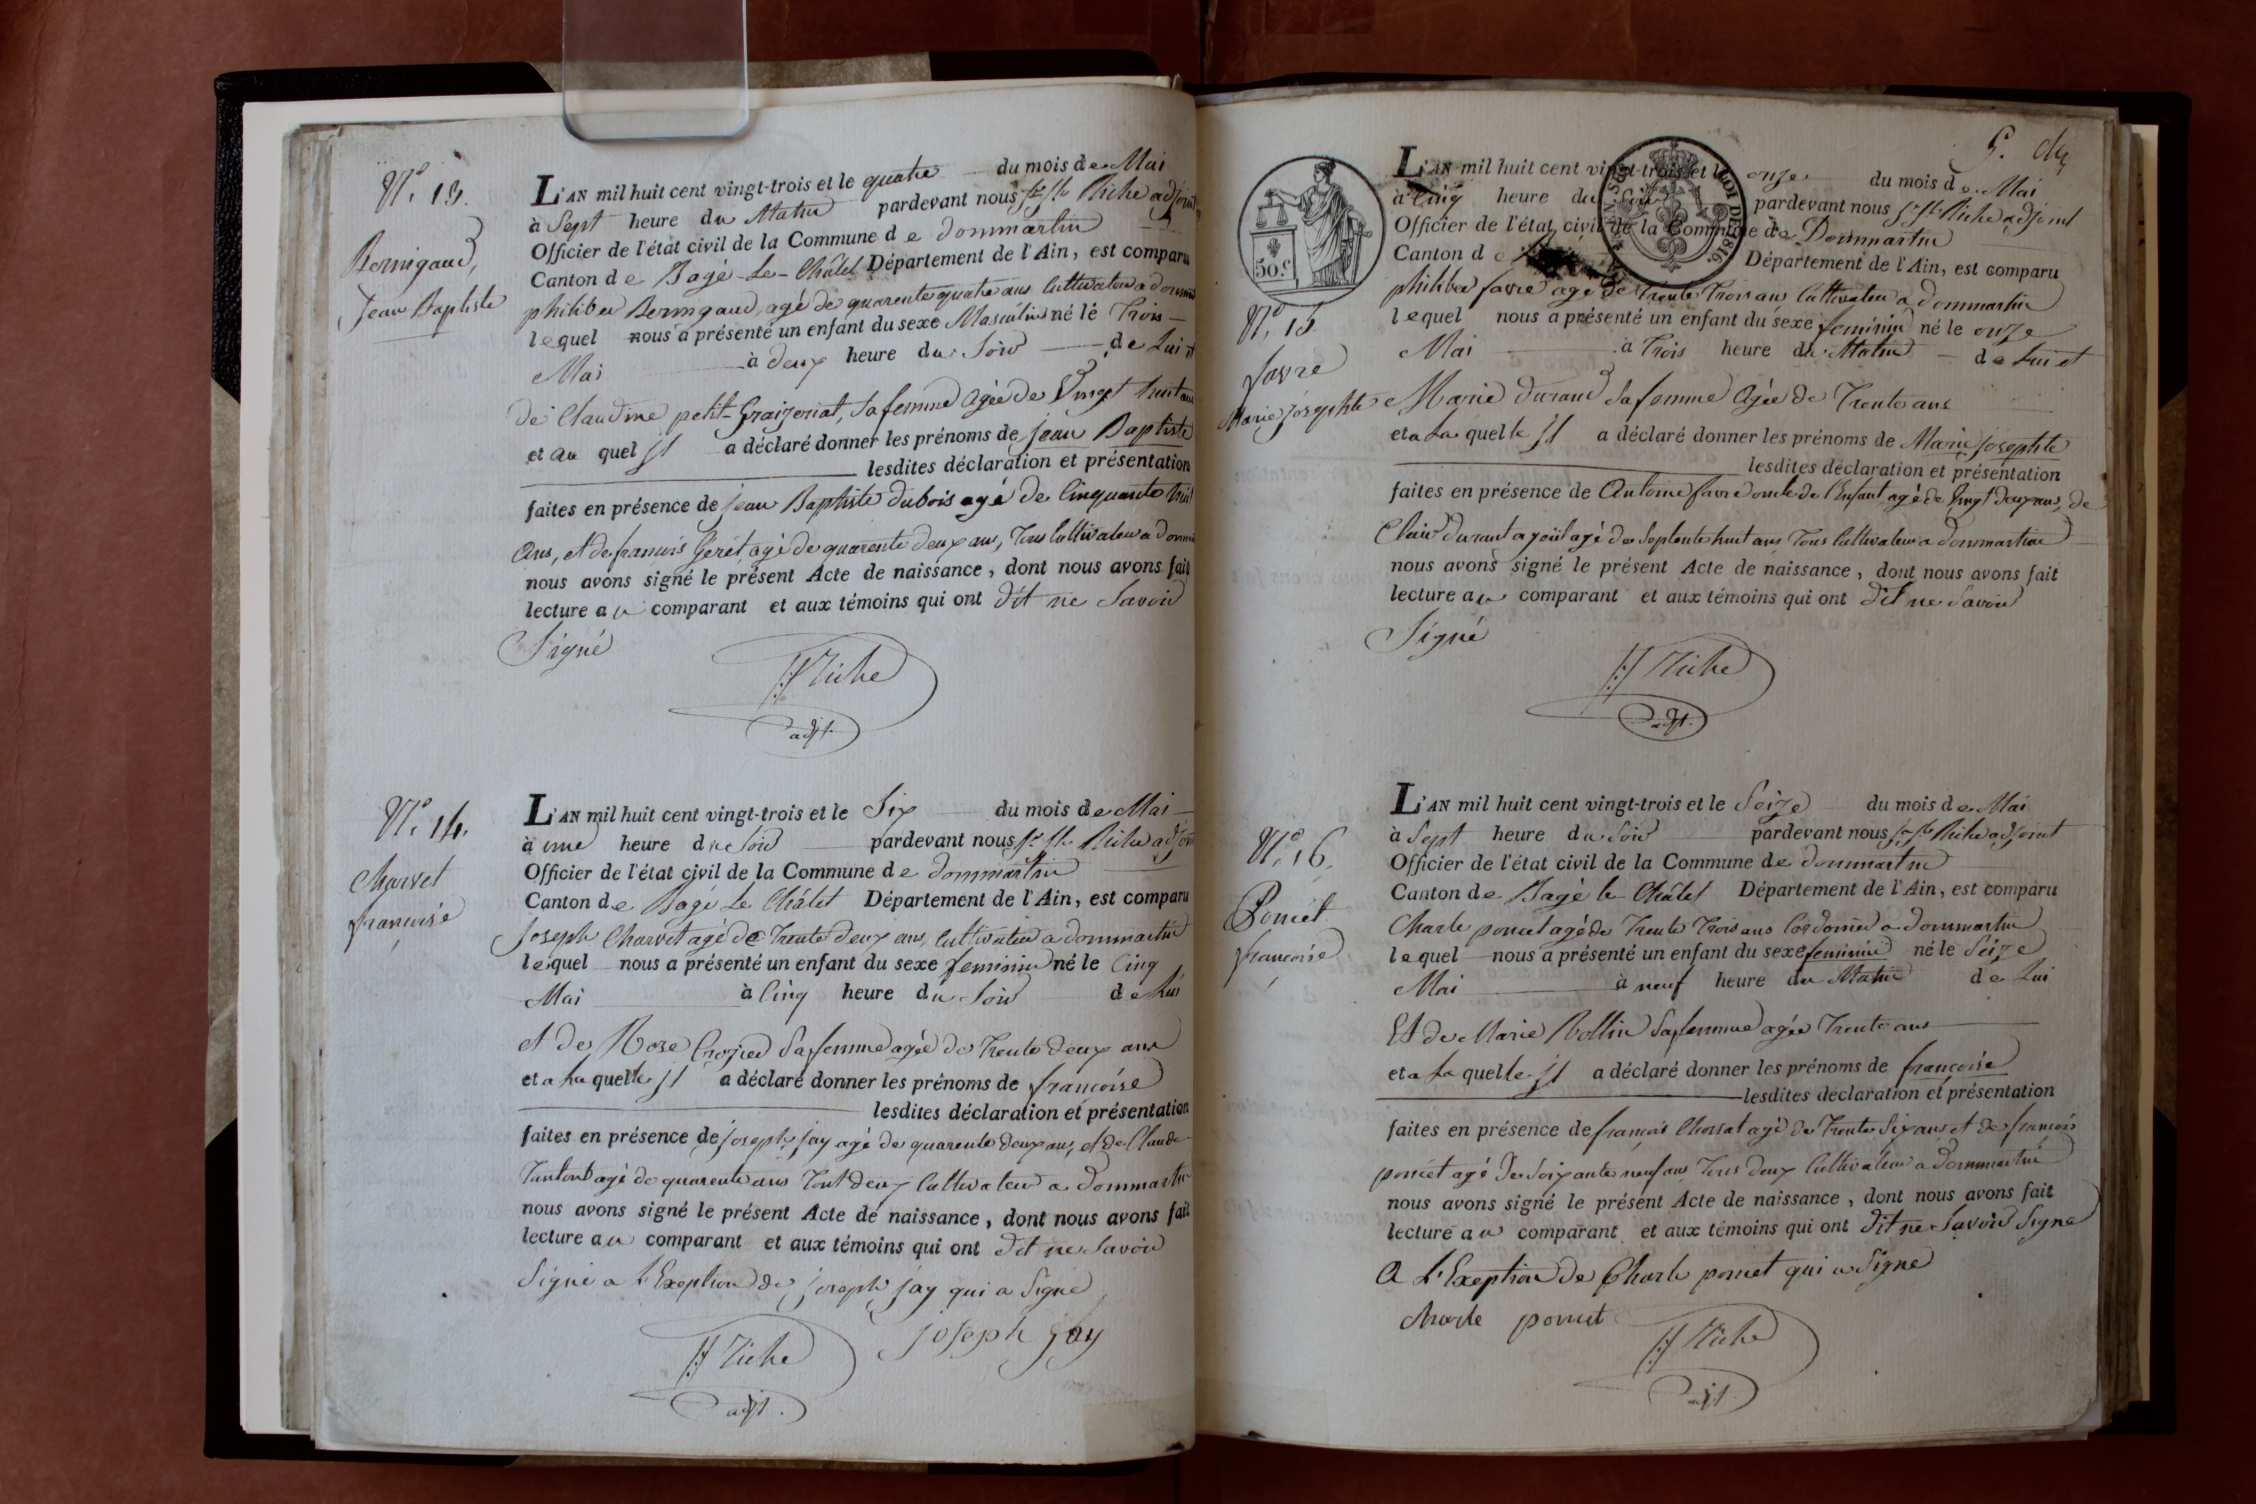 N.o 13.
Bernigaud,
Jean Baptiste
L'AN mil huit cent vingt-trois et le quatre du mois de Mai
à Sept heure du Matin pardevant nous Riche adjoint
Officier de l'état civil de la Commune de dommartin
Canton de Bagé-Le-Châtel Département de l'Ain, est comparu
philiber Bernigaud, agé de quarente quatre ans Cultivateur a
lequel nous a présenté un enfant du sexe Masculin né le Trois
Mai à deux heure du Soir de Lui et
de Claudine petit-Graizeriat, sa femme Agée de Vingt huit ans
et au quel Il a déclaré donner les prénoms de jean Baptiste
lesdites déclaration et présentation
faites en présence de jean Baptiste dubois agé de Cinquante huit
Ans, et de francois Geret agé de quarente deux ans, Tous Cultivateur a
nous avons signé le présent Acte de naissance, dont nous avons fait
lecture au comparant et aux témoins qui ont dit ne Savoir
Signé
Riche
adjt.
N.o 14.
Charvet
francoise
L'AN mil huit cent vingt-trois et le Six du mois de Mai
à une heure du Soir pardevant nous Riche adjoint
Officier de l'état civil de la Commune de dommartin
Canton de Bagé Le Châtel Département de l'Ain, est comparu
Joseph Charvet agé de Trente deux ans, Cultivateur a dommartin
lequel nous a présenté un enfant du sexe feminin né le Cinq
Mai à Cinq heure du Soir de Lui
et de Rose Crozier Sa femme agée de Trente deux ans
et a La quelle Il a déclaré donner les prénoms de francoise
lesdites déclaration et présentation
faites en présence de joseph jay agé de quarente deux ans, et de Claude
agé de quarente ans Tout deux Cultivateur a Dommartin
nous avons signé le présent Acte de naissance, dont nous avons fait
lecture au comparant et aux témoins qui ont dit ne Savoir
Signé a L'Exeption de joseph jay qui a Signé
Riche
joseph jay
adjt.
5.
50 c.
LOI DE 1816.
N.o 15
favre
Marie josephte
L'AN mil huit cent vingt-trois et le onze du mois de Mai
à Cinq heure du Soir pardevant nous Riche adjoint
Officier de l'état civil de la Commune de Dommartin
Canton de Département de l'Ain, est comparu
philiber favre agé de trente Trois ans Cultivateur a dommartin
lequel nous a présenté un enfant du sexe feminin né le onze
Mai à Trois heure du Matin de Lui et
Marie durand Sa femme Agée de Trente ans
et a La quelle Il a déclaré donner les prénoms de Marie josephte
lesdites déclaration et présentation
faites en présence de Antoine favre oncle de l'Enfant agé de Vingt deux ans, de
Clair durant agé de Septente huit ans Tous Cultivateur a dommartin
nous avons signé le présent Acte de naissance, dont nous avons fait
lecture au comparant et aux témoins qui ont dit ne Savoir
Signé
Riche
adjt.
N.o 16.
Poncet
francoise
L'AN mil huit cent vingt-trois et le Seize du mois de Mai
à Sept heure du Soir pardevant nous Riche adjoint
Officier de l'état civil de la Commune de dommartin
Canton de Bagé le Châtel Département de l'Ain, est comparu
Charle poncet agé de Trente Trois ans Cordonier a dommartin
lequel nous a présenté un enfant du sexe feminin né le Seize
Mai à neuf heure du Matin de Lui
Et de Marie Vollin Sa femme agée Trente ans
et a La quelle Il a déclaré donner les prénoms de francoise
lesdites déclaration et présentation
faites en présence de francois Chossat agé de Trente Six ans et de francois
poncet agé de Soixante neuf ans Tous deux Cultivateur a Dommartin
nous avons signé le présent Acte de naissance, dont nous avons fait
lecture au comparant et aux témoins qui ont dit ne Savoir Signé
A L'Exeption de Charle poncet qui a Signé
charle poncet
Riche
adjt.